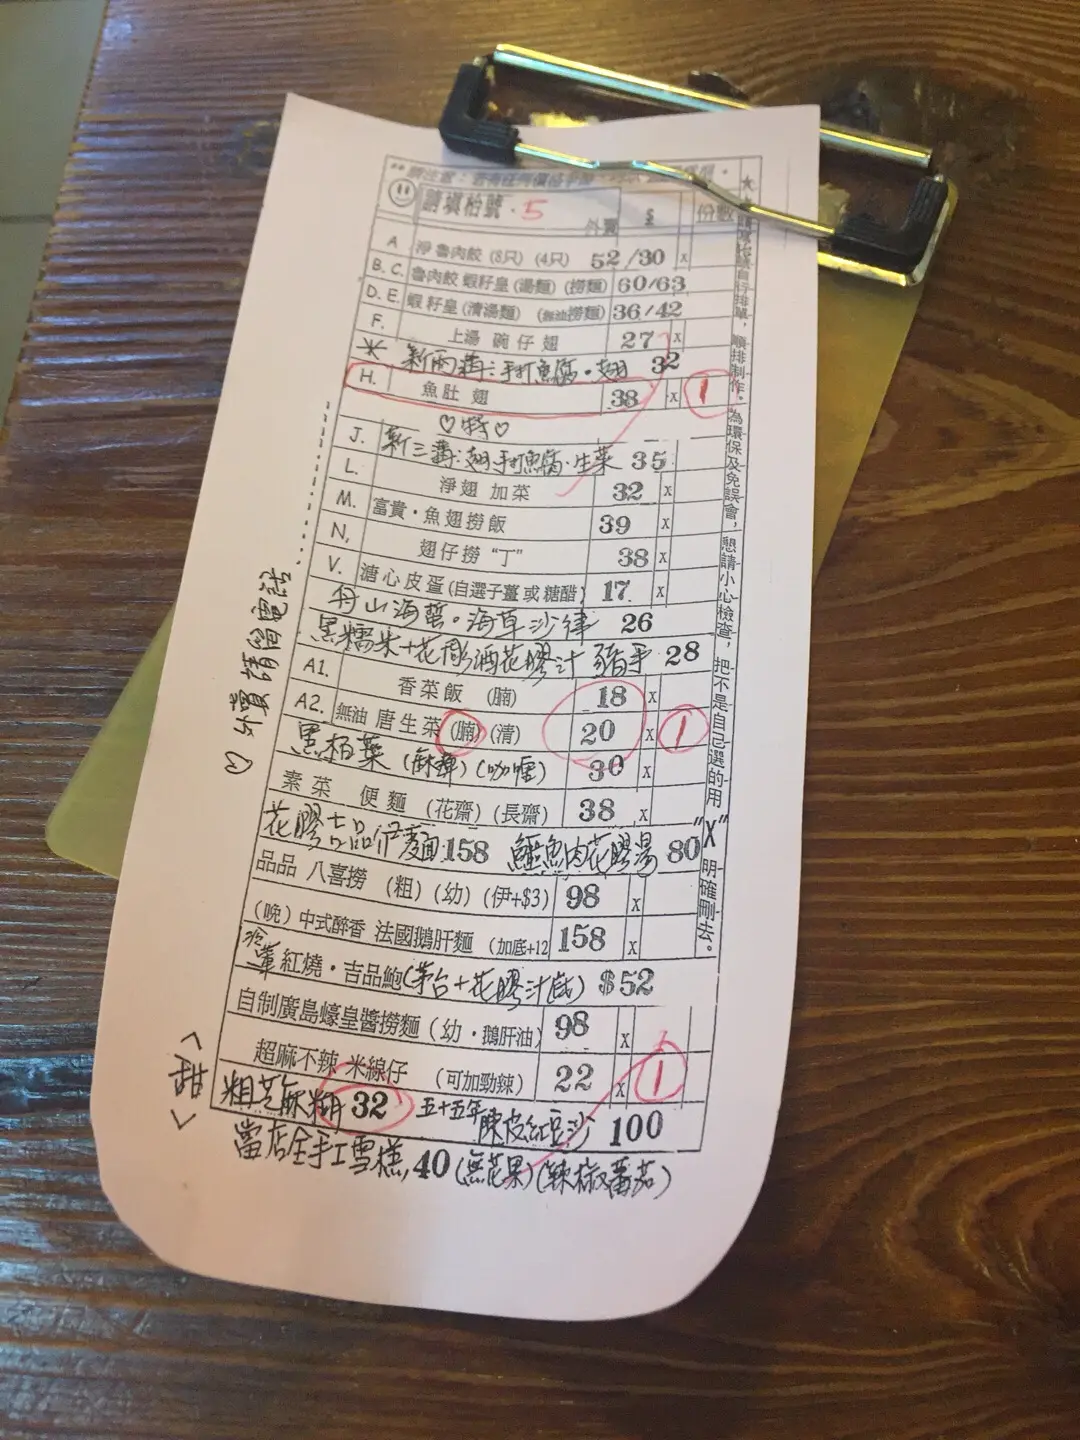 請填枱號. 5
外賣 $ 份數
A 淨魯肉餃 (8只) (4只) 52/30 x
B. C. 魯肉餃 蝦籽皇 (湯麵) (撈麵) 60/63
D. E. 蝦籽皇 (清湯麵) (無油撈麵) 36/42
F. 上湯 碗仔翅 27 x
新兩溝:手打魚腐・翅 32
H. 魚肚 翅 38 x 1
♡特♡
J. 新三溝:翅手打魚腐・生菜 35
L. 淨翅 加菜 32 x
M. 富貴・魚翅撈飯 39 x
N, 翅仔撈“丁” 38 x
V. 溏心皮蛋 (自選子薑或糖醋) 17. x
舟山海蜇・海草沙律 26
黑糯米+花彫酒花膠汁 豬手 28
A1. 香菜飯 (腩) 18 x
A2. 無油 唐生菜 (腩) (清) 20 x 1
黑柏葉 (麻辣) (咖喱) 30 x
素菜 便麵 (花齋) (長齋) 38 x
花膠吉品伊麵 158 鱷魚肉花膠湯 80
品品 八喜撈 (粗) (幼) (伊+$3) 98 x
(晚) 中式醉香 法國鵝肝麵 (加底+12 158 x
紅燒・吉品鮑(茅台+花膠汁底) $52
自制廣島蠔皇醬撈麵 (幼・鵝肝油) 98 x
超麻不辣 米線仔 (可加勁辣) 22 x 1
粗芝麻糊 32 五十五年陳皮紅豆沙 100
當店全手工雪糕, 40 (無花果) (辣椒蕃茄)
<甜>
♡ 外賣請留電話
為環保及免誤會, 懇請小心檢查, 把不是自己選的用"X"明確刪去。